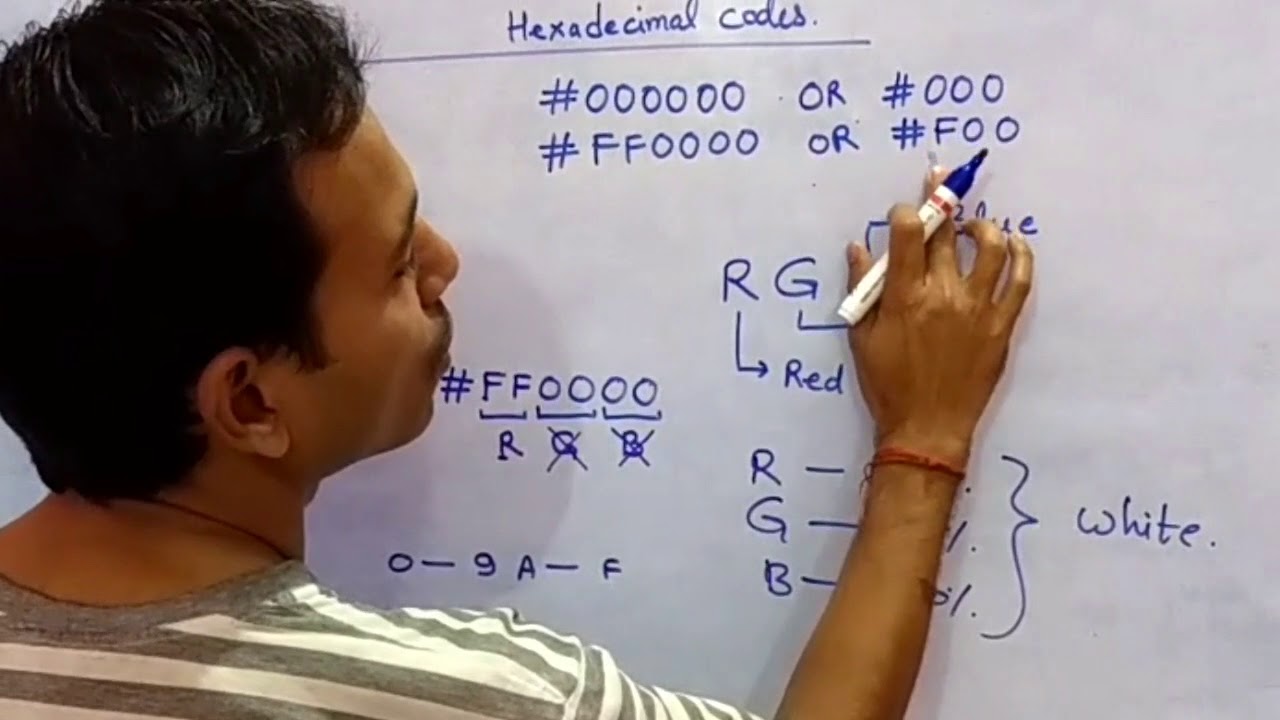 Hexadecimal codes.
#000000 OR #000
#FF0000 OR #F00
Blue
R G
Red
#FF0000
R G B
R —
G — %.
B — 0%.
White.
0 — 9 A — F